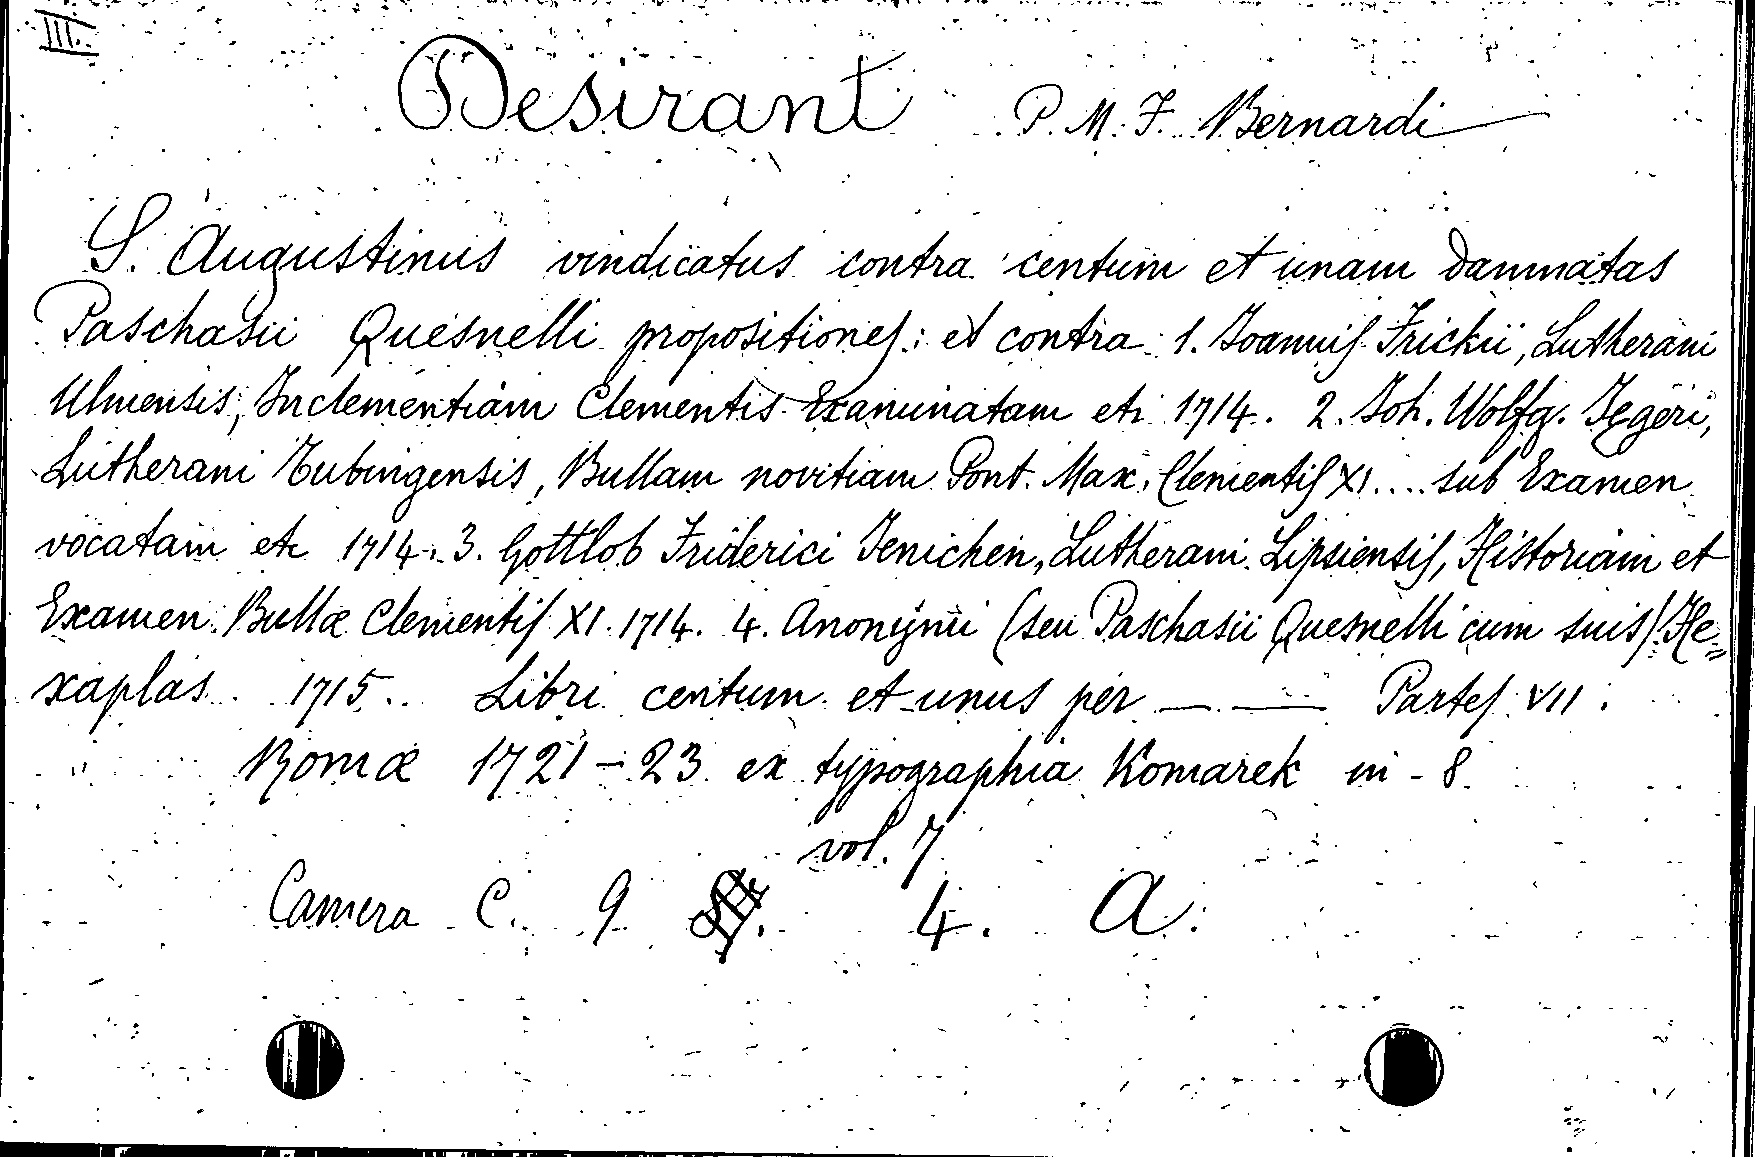 III.
Desirant P. M. F. Bernardi
S. Augustinus vindicatus contra centum et unam damnatas
Paschasii Quesnelli propositiones: et contra 1. Joannis Frickii, Lutherani
Ulmensis, Inclementiam Clementis Examinatam etc 1714. 2. Joh. Wolfg. Jęgeri,
Lutherani Tubingensis, Bullam novitiam Pont. Max. Clementis XI.... sub Examen
vocatam etc 1714. 3. Gottlob Friderici Jenichen, Lutherani Lipsiensis, Historiam et
Examen Bullæ Clementis XI. 1714. 4. Anonymi (seu Paschasii Quesnelli cum suis) He=
xaplas. 1715. Libri centum et unus per — — Partes VII.
Romæ 1721-23 ex typographia Komarek in-8
vol. 7
Camera C. 9 4. A.